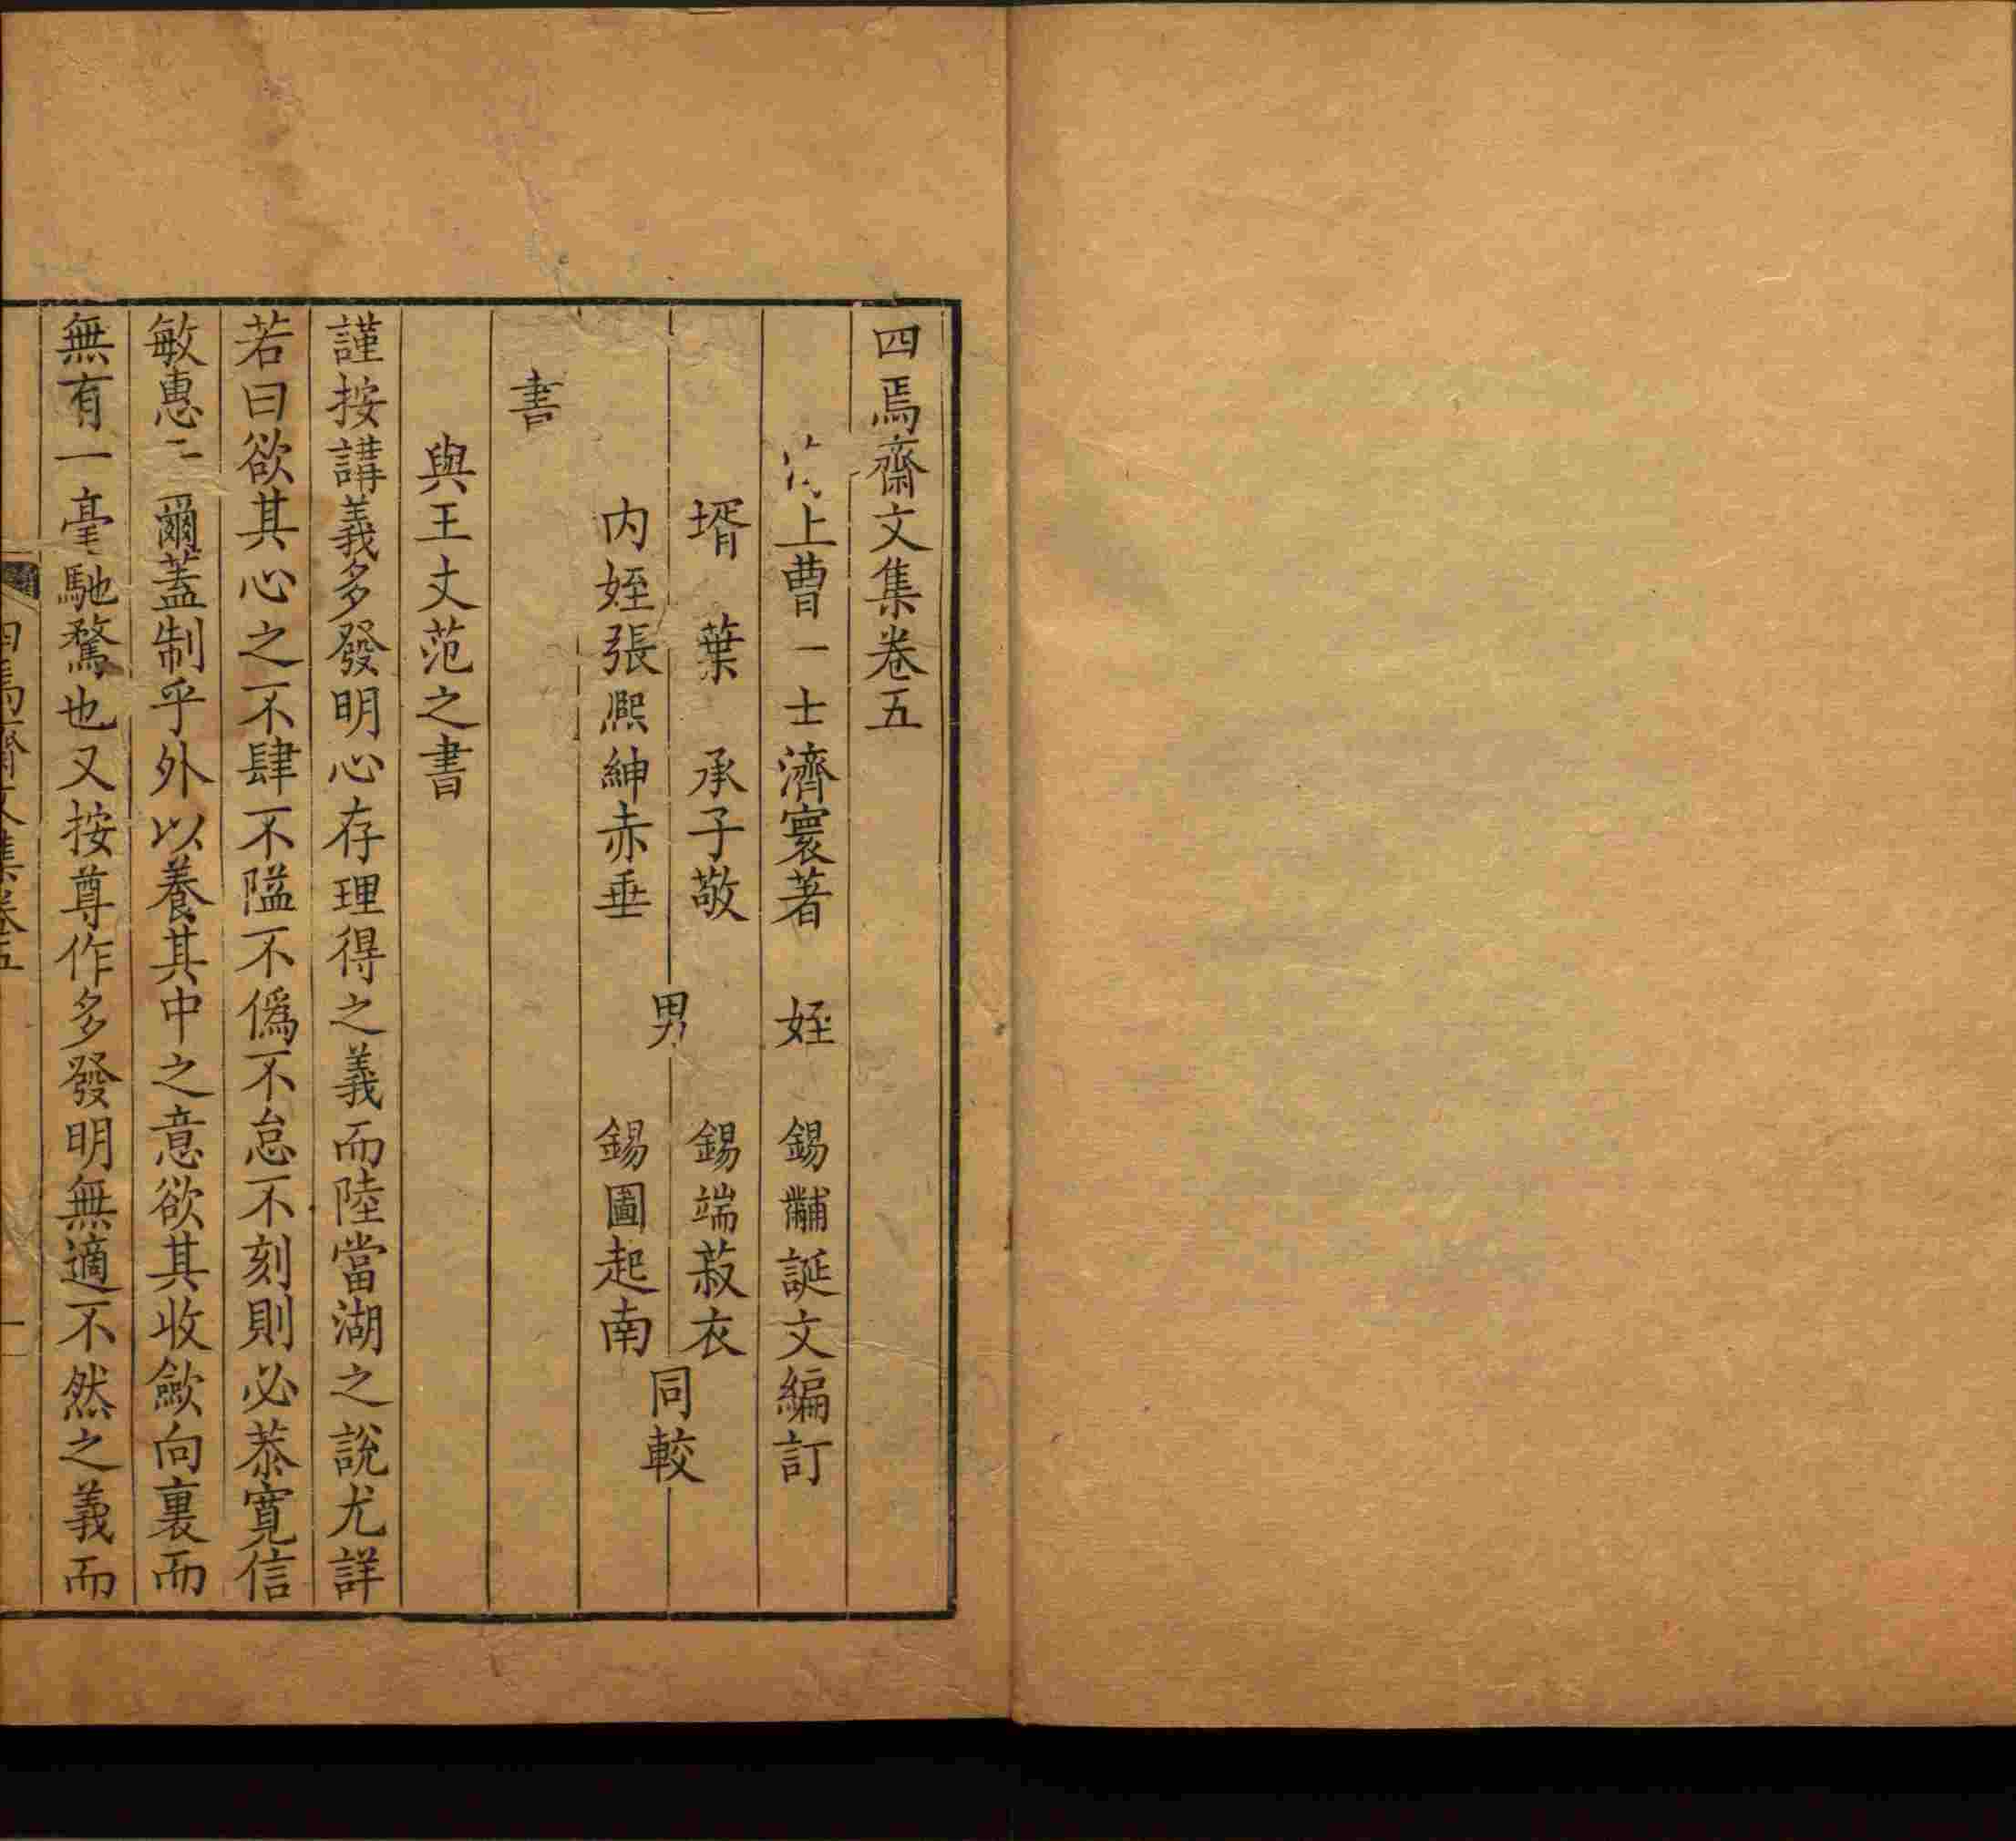 四焉齋文集卷五
上曹一士濟寰著　姪　錫黼誕文編訂
壻　葉　承子敬　男　錫端菽衣　同較
内姪張熙紳赤垂　錫圖起南
書
與王丈范之書
謹按講義多發明心存理得之義而陸當湖之說尤詳
若曰欲其心之不肆不隘不僞不怠不刻則必恭寬信
敏惠　爾蓋制乎外以養其中之意欲其收歛向裏而
無有一毫馳騖也又按尊作多發明無適不然之義而
四焉齋文集卷五　一